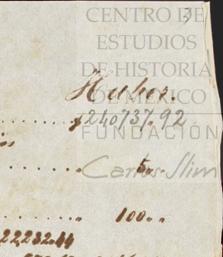 CENTRO DE
ESTUDIOS
DE HISTORIA
DE MÉXICO
Haber.
240737.92
FUNDACIÓN
Carlos Slim
5
100
22232.44